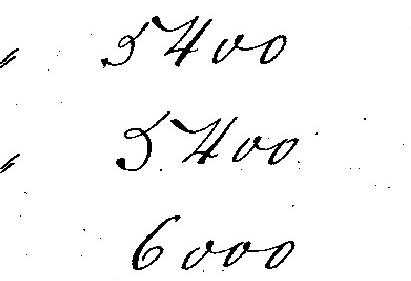 " 5400
" 5400
6000